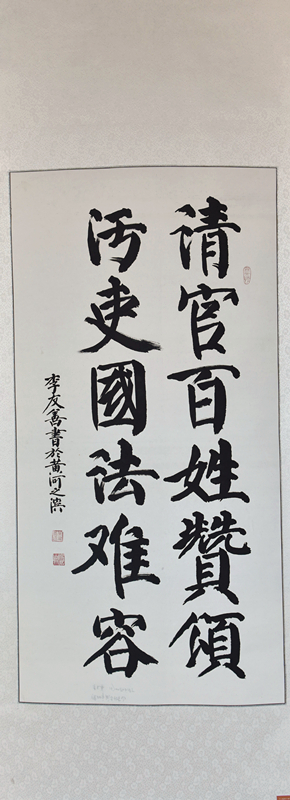 清官百姓贊頌
污吏國法难容
李友善書於黄河之濱